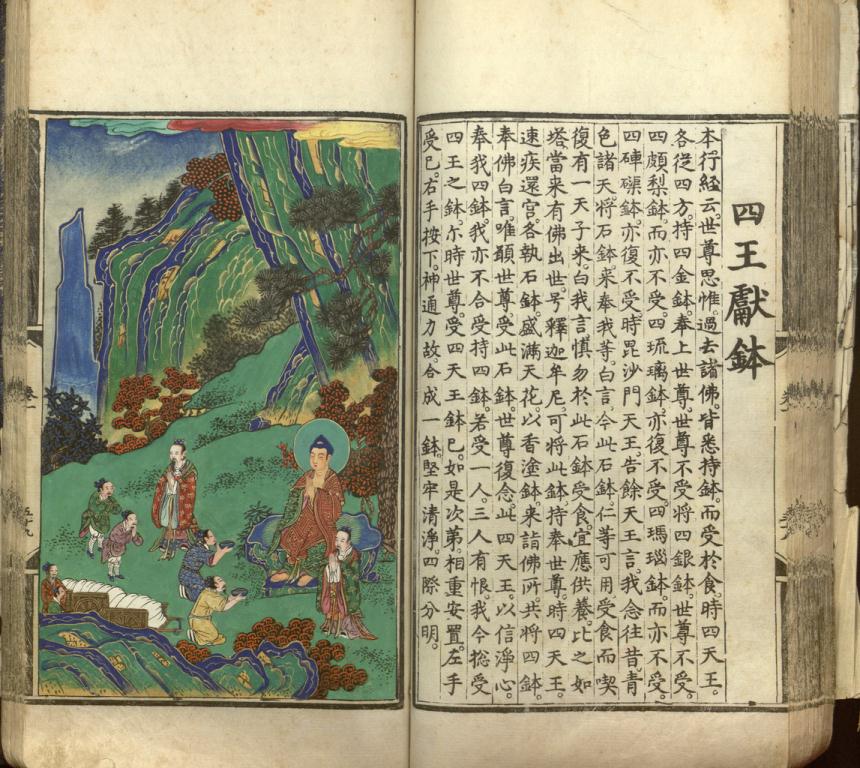 四王獻鉢
本行經云。世尊思惟。過去諸佛。皆悉持鉢。而受於食。時四天王。
各從四方。持四金鉢。奉上世尊。世尊不受。將四銀鉢。世尊不受。
四頗梨鉢。而亦不受。四琉璃鉢。亦復不受。四瑪瑙鉢。而亦不受。
四硨磲鉢。亦復不受。時毘沙門天王。告餘天王言。我念往昔。青
色諸天。將石鉢來奉我等。白言。今此石鉢。仁等可用受食而喫
復有一天子來。白我言。慎勿於此石鉢受食。宜應供養。比之如
塔。當來有佛出世。号釋迦牟尼。可將此鉢持奉世尊。時四天王。
速疾還宮。各執石鉢。盛滿天花。以香塗鉢。來詣佛所。共將四鉢。
奉佛白言。唯願世尊。受此石鉢。世尊復念。此四天王。以信淨心。
奉我四鉢。我亦不合受持四鉢。若受一人。三人有恨。我今捴受
四王之鉢。尒時世尊。受四天王鉢已。如是次第。相重安置。左手
受已。右手按下。神通力故。合成一鉢。堅牢清淨。四際分明。